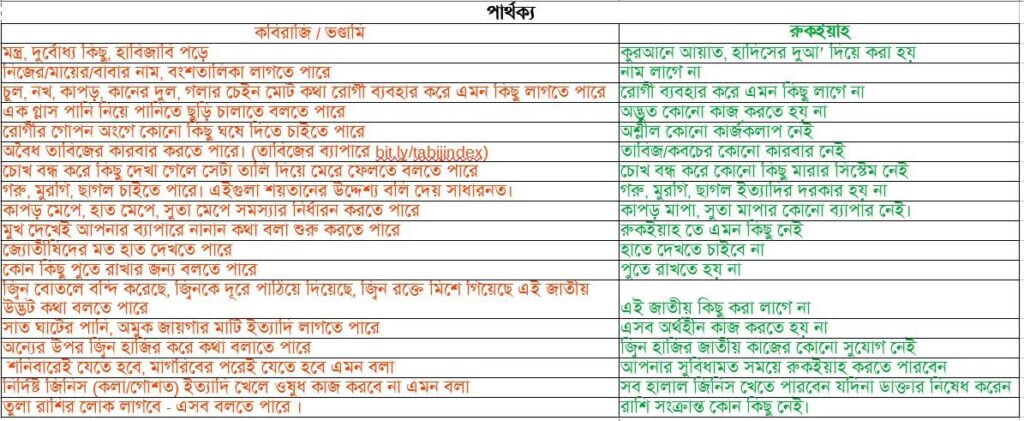 পার্থক্য
কবিরাজি / ভণ্ডামি	রুকইয়াহ
মন্ত্র, দুর্বোধ্য কিছু, হাবিজাবি পড়ে	কুরআনে আয়াত, হাদিসের দুআ’ দিয়ে করা হয়
নিজের/মায়ের/বাবার নাম, বংশতালিকা লাগতে পারে	নাম লাগে না
চুল, নখ, কাপড়, কানের দুল, গলার চেইন মোট কথা রোগী ব্যবহার করে এমন কিছু লাগতে পারে	রোগী ব্যবহার করে এমন কিছু লাগে না
এক গ্লাস পানি নিয়ে পানিতে ছুড়ি চালাতে বলতে পারে	অদ্ভুত কোনো কাজ করতে হয় না
রোগীর গোপন অংগে কোনো কিছু ঘষে দিতে চাইতে পারে	অশ্লীল কোনো কার্জকলাপ নেই
অবৈধ তাবিজের কারবার করতে পারে। (তাবিজের ব্যাপারে bit.ly/tabijindex)	তাবিজ/কবচের কোনো কারবার নেই
চোখ বন্ধ করে কিছু দেখা গেলে সেটা তালি দিয়ে মেরে ফেলতে বলতে পারে	চোখ বন্ধ করে কোনো কিছু মারার সিস্টেম নেই
গরু, মুরগি, ছাগল চাইতে পারে। এইগুলা শয়তানের উদ্দেশ্য বলি দেয় সাধারনত।	গরু, মুরগি, ছাগল ইত্যাদির দরকার হয় না
কাপড় মেপে, হাত মেপে, সুতা মেপে সমস্যার নির্ধারন করতে পারে	কাপড় মাপা, সুতা মাপার কোনো ব্যাপার নেই।
মুখ দেখেই আপনার ব্যাপারে নানান কথা বলা শুরু করতে পারে	রুকইয়াহ তে এমন কিছু নেই
জ্যোতীষিদের মত হাত দেখতে পারে	হাতে দেখতে চাইবে না
কোন কিছু পুতে রাখার জন্য বলতে পারে	পুতে রাখতে হয় না
জ্বিন বোতলে বন্দি করেছে, জ্বিনকে দূরে পাঠিয়ে দিয়েছে, জ্বিন রক্তে মিশে গিয়েছে এই জাতীয়
উদ্ভট কথা বলতে পারে	এই জাতীয় কিছু করা লাগে না
সাত ঘাটের পানি, অমুক জায়গার মাটি ইত্যাদি লাগতে পারে	এসব অর্থহীন কাজ করতে হয় না
অন্যের উপর জ্বিন হাজির করে কথা বলাতে পারে	জ্বিন হাজির জাতীয় কাজের কোনো সুযোগ নেই
শনিবারেই যেতে হবে, মাগরিবের পরেই যেতে হবে এমন বলা	আপনার সুবিধামত সময়ে রুকইয়াহ করতে পারবেন
নির্দিষ্ট জিনিস (কলা/গোশত) ইত্যাদি খেলে ওষুধ কাজ করবে না এমন বলা	সব হালাল জিনিস খেতে পারবেন যদিনা ডাক্তার নিষেধ করেন
তুলা রাশির লোক লাগবে - এসব বলতে পারে ।	রাশি সংক্রান্ত কোন কিছু নেই।